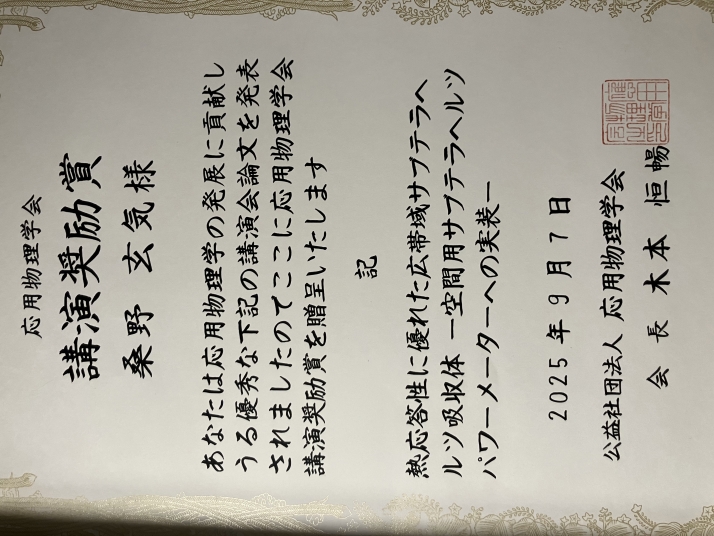 応用物理学会
講演奨励賞
桑野 玄気様
あなたは応用物理学の発展に貢献し
うる優秀な下記の講演会論文を発表
されましたのでここに応用物理学会
講演奨励賞を贈呈いたします
記
熱応答性に優れた広帯域サブテラヘ
ルツ吸収体 ー空間用サブテラヘルツ
パワーメーターへの実装ー
2025年9月7日
公益社団法人 応用物理学会
会長 木本 恒暢